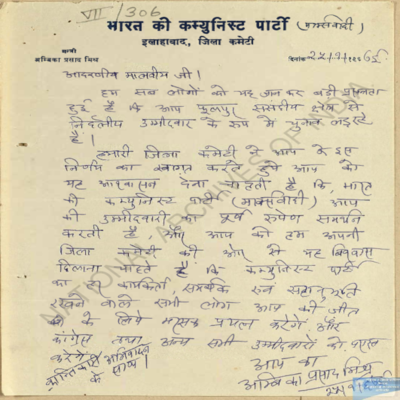 VII/306
भारत की कम्युनिस्ट पार्टी (मार्क्सवादी)
इलाहाबाद, जिला कमेटी
मन्त्री
अम्बिका प्रसाद मिश्र
दिनांक
आदरणीय मालवीय जी!
हम सब लोगों को यह जान कर बड़ी प्रसन्नता
हुई है कि आप फूलपुर संसदीय क्षेत्र से
निर्दलीय उम्मीदवार के रूप में चुनाव लड़ रहे
हैं।
हमारी जिला कमेटी आप के इस
निर्णय का स्वागत करते हुये आप को
यह आश्वासन देना चाहती है कि, भारत
की कम्युनिस्ट पार्टी (मार्क्सवादी) आप
की उम्मीदवारी का पूर्ण रूपेण समर्थन
करती है, और आप को हम अपनी
जिला कमेटी की ओर से यह विश्वास
दिलाना चाहते हैं कि कम्युनिस्ट पार्टी
का कार्यकर्ता, समर्थक एवं सहानुभूति
रखने वाले सभी लोग आप की जीत
के लिये भरसक प्रयत्न करेंगे और
कांग्रेस तथा अन्य सभी उम्मीदवारों को परास्त
करेंगे।
क्रान्तिकारी अभिवादन
के साथ।
आप का
अम्बिका प्रसाद मिश्र
NATIONAL ARCHIVES OF INDIA